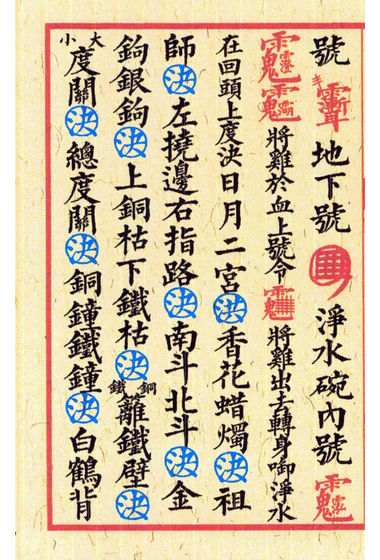 號 地下號 淨水碗內號
將雞於血上號令 將雞出土轉身啣淨水
在回頭上度決日月二宮決香花蜡燭決祖
師決左撓邊右指路決南斗北斗決金
鉤銀鉤決上銅枯下鐵枯決銅鐵籬鐵壁決
大小度關決總度關決銅鐘鐵鐘決白鶴背